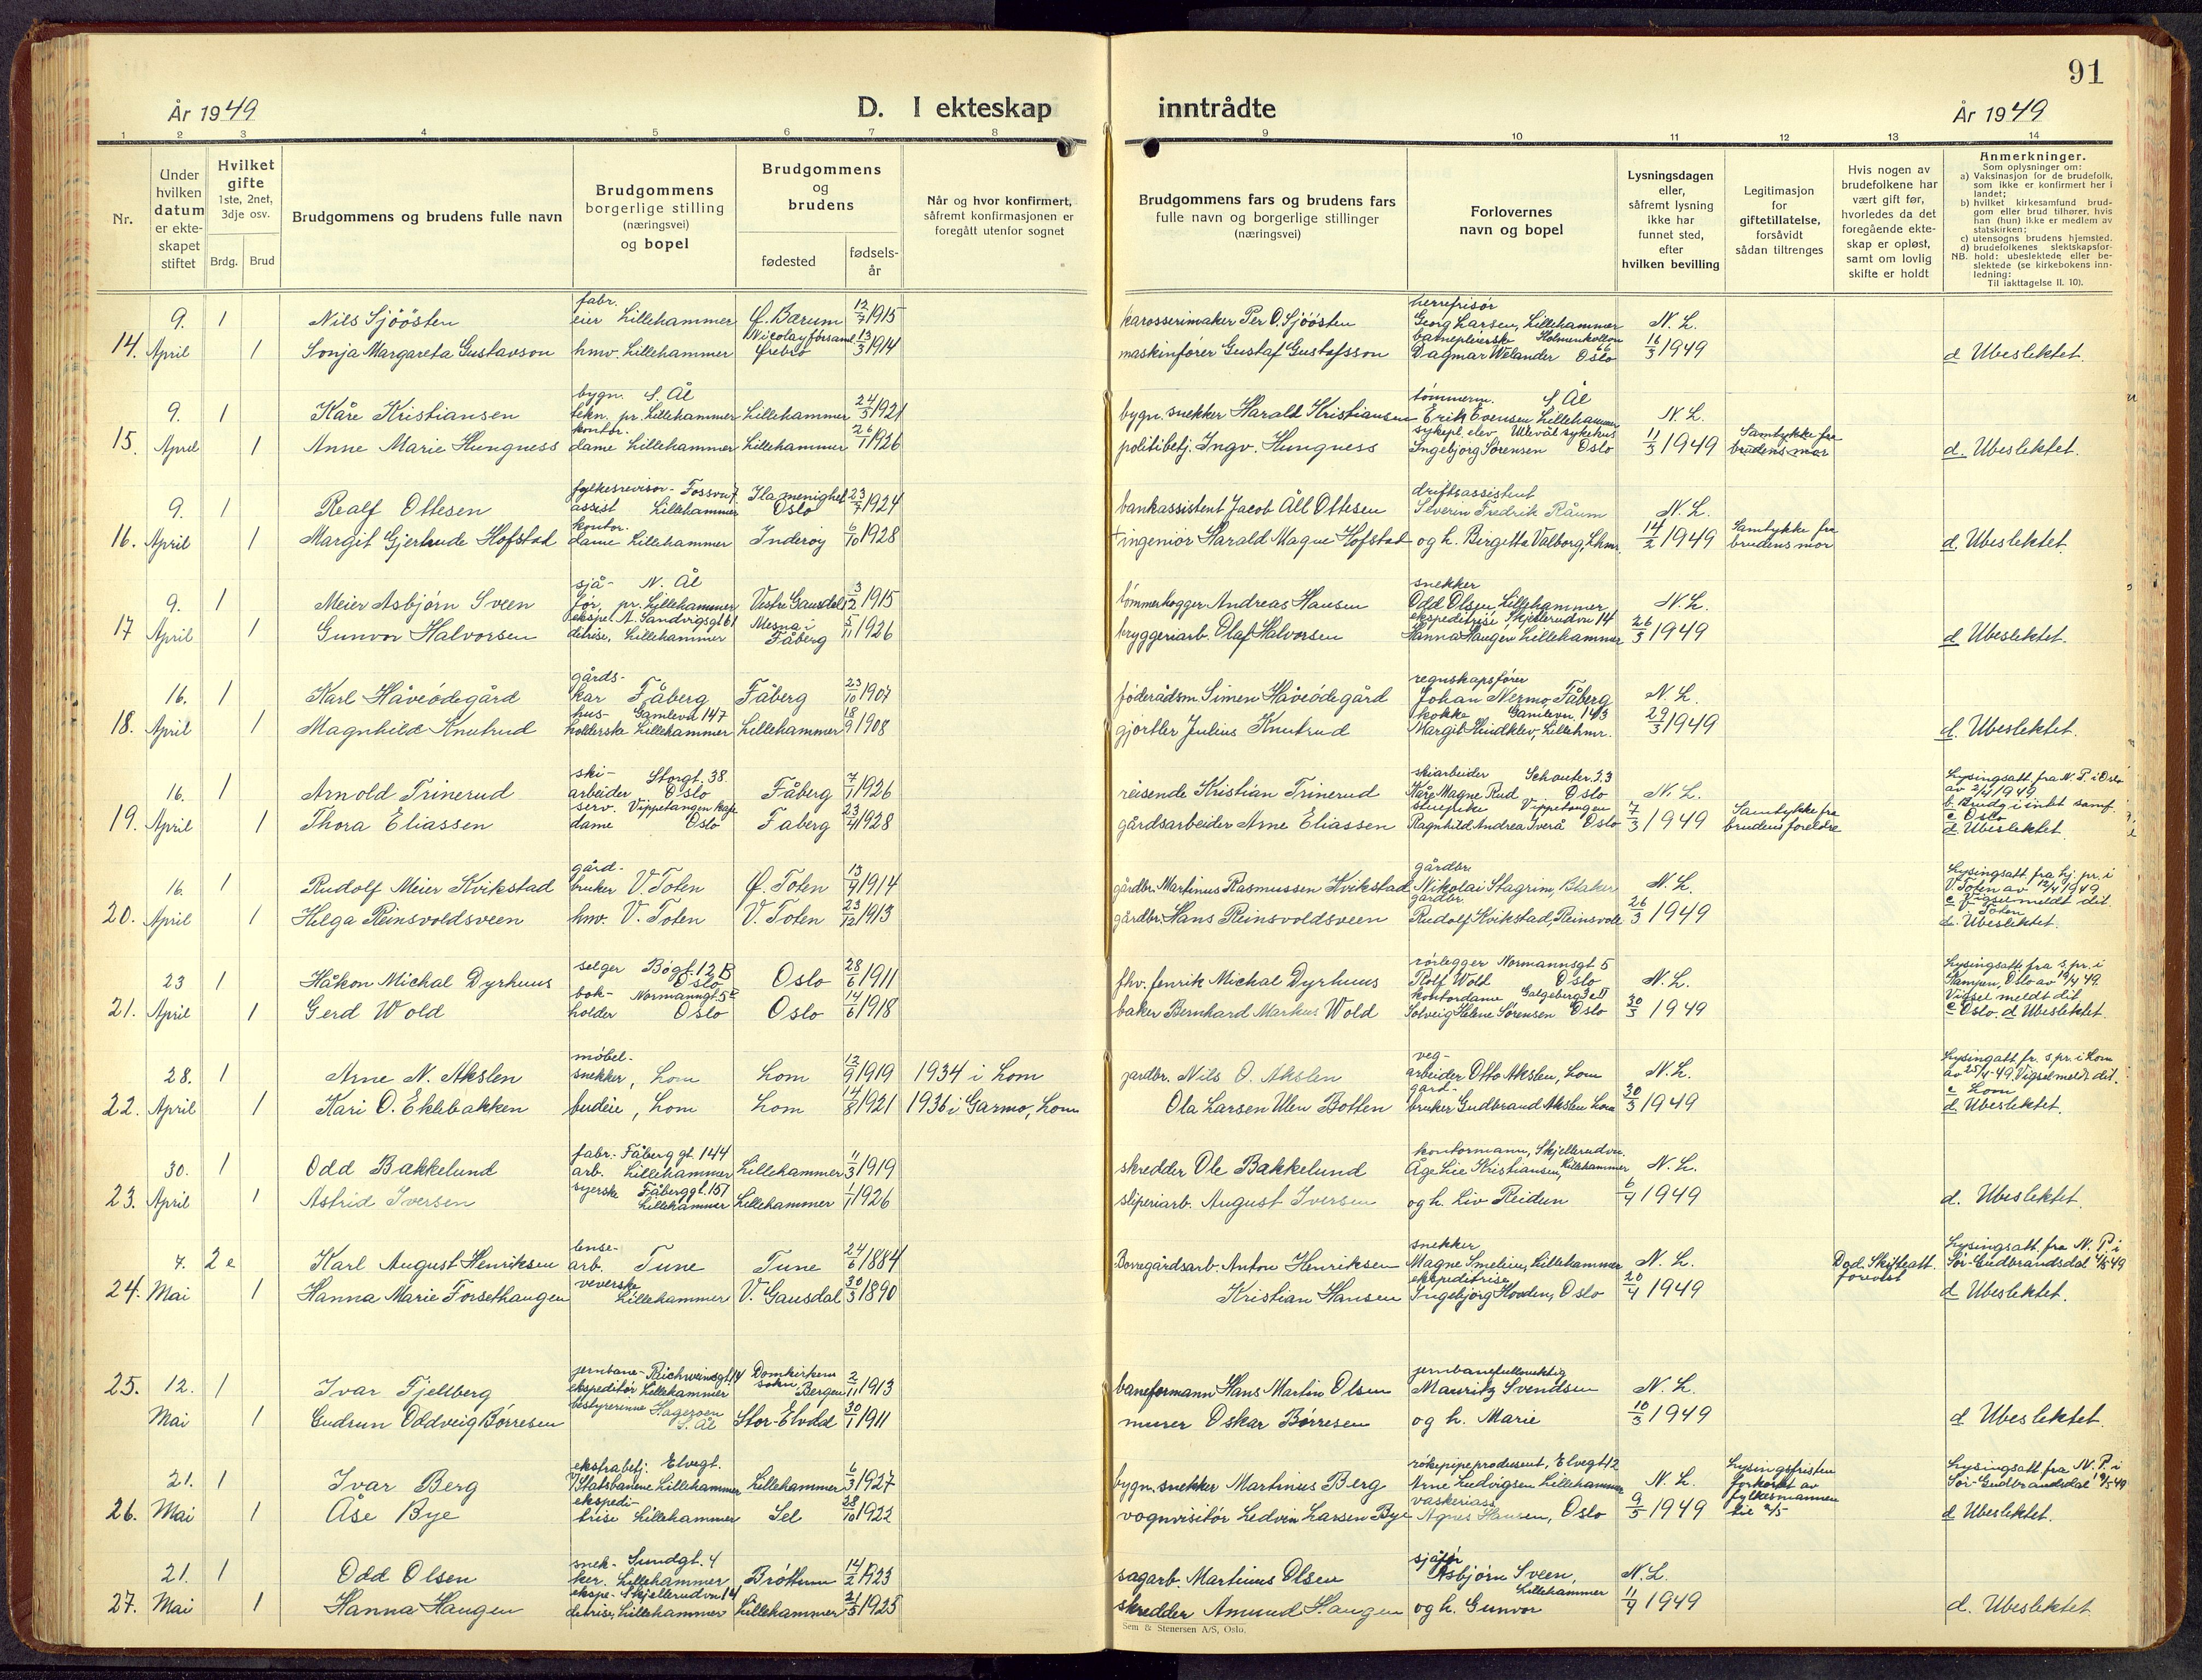 91
År 1949
D. I ekteskap inntrådte
År 1949
1 2 3 4 5 6 7 8 9 10 11 12 13 14
Nr.
Under hvilken datum er ekte- skapet stiftet
Hvilket gifte 1ste, 2net, 3dje osv.
Brdg. Brud
Brudgommens og brudens fulle navn
Brudgommens borgerlige stilling (næringsvei) og bopel
Brudgommens og brudens
fødested
fødsels- år
Når og hvor konfirmert, såfremt konfirmasjonen er foregått utenfor sognet
Brudgommens fars og brudens fars fulle navn og borgerlige stillinger (næringsvei)
Forlovernes navn og bopel
Lysningsdagen eller, såfremt lysning ikke har funnet sted, efter hvilken bevilling
Legitimasjon for giftetillatelse, forsåvidt sådan tiltrenges
Hvis nogen av brudefolkene har vært gift før, hvorledes da det foregående ekte- skap er opløst, samt om lovlig skifte er holdt
Anmerkninger.
Som oplysninger om:
a) Vaksinasjon for de brudefolk, som ikke er konfirmert her i landet;
b) hvilket kirkesamfund brud- gom eller brud tilhører, hvis han (hun) ikke er medlem av statskirken;
c) utensogns brudens hjemsted.
d) brudefolkenes slektskapsfor- hold: ubeslektede eller be- slektede (se kirkebokens inn- ledning:
NB. Til iakttagelse II. 10).
9. 1 Nils Sjöösten fabr. eier Lillehammer Ø. Bærum 12/7 1915 karosserimaker Per O. Sjöösten herrefrisør Georg Larsen, Lillehammer N. L.
14. April 1 Sonja Margareta Gustavson hmv. Lillehammer Nicolay församl. Örebro 13/3 1914 maskinfører Gustaf Gustafsson barnepleierske Holmenkollen 66 Dagmar Welander Oslo 16/3 1949 d Ubeslektet.
9. 1 Kåre Kristiansen bygn. S. Ål tekn. pr. Lillehammer Lillehammer 24/5 1921 bygn. snekker Harald Kristiansen tømmerm. S. Ål Erik Evensen Lillehammer N. L.
15. April 1 Anne Marie Hungness kontor. dame Lillehammer Lillehammer 26/1 1926 politibetj. Ingv. Hungness sykepl. elev Ullevål sykehus Ingebjørg Sørensen Oslo 11/3 1949 Samtykke fra brudens mor d. Ubeslektet.
9. 1 Realf Ottesen fylkesrevisor- Fossvn 7 assist Lillehammer Ila menighet Oslo 23/7 1924 bankassistent Jacob Åll Ottesen driftsassistent Severin Fredrik Råum N. L.
16. April 1 Margit Gjertrude Hofstad kontor. dame Lillehammer Inderøy 6/10 1928 + ingeniør Harald Magne Hofstad og h. Bergetta Valborg, Lhmr. 14/2 1949 Samtykke fra brudens mor d. Ubeslektet
9. 1 Meier Asbjørn Sveen sjå- N. Ål før, pr. Lillehammer Vestre Gausdal 3/2 1915 tømmerhogger Andreas Hansen snekker Odd Olsen, Lillehammer N. L.
17 April 1 Gunvor Halvorsen ekspe. A. Sandvigsgt 61 ditrise, Lillehammer Mesna i Fåberg 5/11 1926 bryggeriarb. Olaf Halvorsen ekspeditrise Skjellerudvn 14 Hanna Haugen Lillehammer 26/3 1949 d Ubeslektet.
16. 1 Karl Håveødegård gårds- kar Fåberg Fåberg 23/10 1907 føderådsm. Simen Håveødegård regnskapsfører Johan Nermo, Fåberg N. L.
18. April 1 Magnhild Knutrud hus- Gamlevn 147 holderske Lillehammer Lillehammer 18/9 1908 gjørtler Julius Knutrud kokke Gamlevn. 143 Margit Hindklev, Lillehmr. 29/3 1949 d. Ubeslektet.
16. 1 Arnold Trinerud ski- Storgt. 38. arbeider Oslo Fåberg 7/1 1926 reisende Kristian Trinerud skiarbeider Schouter. 23 Kåre Magne Rud Oslo N. L. Lysingsatt. fra N. P. i Oslo av 2/4 1949
19. April 1 Thora Eliassen serv. Vippetangen kafe dame Oslo Fåberg 23/4 1928 gårdsarbeider Arne Eliassen stuepike Vippetangen Ragnhild Andrea Sverå Oslo 7/3 1949 Samtykke fra brudens foreldre b. Brudg i intet samf. c Oslo d Ubeslektet
16. 1 Rudolf Meier Kvikstad gård- bruker V. Toten Ø. Toten 13/9 1914 gårdbr. Martinus Rasmussen Kvikstad gårdbr Nikolai Stagrim, Blaker N. L. Lysingsatt. fra hj. pr. i V. Toten av 12/4 1949
20. April 1 Helga Reinsvoldsveen hmv. V. Toten V. Toten 23/12 1913 gårdbr. Hans Reinsvoldsveen gårdbr. Rudolf Kvikstad, Reinsvoll 26/3 1949 Vigsel meldt dit. c V. Toten d. Ubeslektet.
23 1 Håkon Michal Dyrhuus selger Bøgt. 12 B Oslo Oslo 28/6 1911 fhv. fenrik Michal Dyrhuus rørlegger Normannsgt 5 Rolf Wold Oslo N. L. Lysingsatt. fra s. pr. i Kampen, Oslo av 19/4 49.
21. April 1 Gerd Wold bok- Normanngt. 5 holder Oslo Oslo 14/6 1918 baker Bernhard Markus Wold kontordame Galgeberg 3 Solveig Helene Sørensen Oslo 30/3 1949 Vigsel meldt dit c Oslo. d Ubeslektet.
28. 1 Arne N. Akslen møbel- snekker, Lom Lom 12/9 1919 1934 i Lom gardbr. Nils O. Akslen veg- arbeider Otto Akslen, Lom N. L. Lysingatt fr. s. pr. i Lom av 25/4-49. Vigsel meldt dit.
22. April 1 Kari O. Eklebakken budeie, Lom Lom 14/8 1921 1936 i Garmo, Lom Ola Larsen Ulen Botten gard- bruker Gudbrand Akslen Lom 30/3 1949 c Lom d. Ubeslektet.
30. 1 Odd Bakkelund fabr.- Fåberg gt. 144 arb. Lillehammer Lillehammer 11/3 1919 skredder Ole Bakkelund kontormann, Skjellerudvn. Åge Lie Kristiansen, Lillehammer N. L.
23. April 1 Astrid Iversen syerske Fåberggt. 151 Lillehammer Lillehammer 1/1 1926 sliperiarb. August Iversen og h. Liv Reidun 6/4 1949 d. Ubeslektet.
7. 2 e Karl August Henriksen lense- arb. Tune Tune 24/6 1884 Borregårdsarb. Anton Henriksen snekker Magne Smelien, Lillehammer N. L. Død. Skifteatt. forevist Lysingsatt. fra N. P. i Sør-Gudbrandsdal 4/5 49
24. Mai 1 Hanna Marie Forsethaugen veverske Lillehammer V. Gausdal 30/3 1890 Kristian Hansen ekspeditrise Ingebjørg Hovden, Oslo 20/4 1949 d Ubeslektet.
25. 12. 1 Ivar Fjeltberg jernbane- Reichweinsgt. 14 ekspeditør Lillehammer Domkirkens sokn Bergen 2/11 1913 baneformann Hans Martin Olsen jernbanefullmektig Mauritz Svendsen N. L.
Mai 1 Gudrun Oddveig Børresen bestyrerinne Hageroen S. Ål Stor-Elvdal 30/1 1911 murer Oskar Børresen og h. Marie 10/3 1949 d Ubeslektet.
21. 1 Ivar Berg ekstrabetj. Elvegt. v/ Statsbanene Lillehammer Lillehammer 6/3 1927 bygn. snekker Martinus Berg røkepipeprodusent, Elvegt 12 Arne Ludvigsen Lillehammer N. L. Lysingsfristen forkortet av fylkesmannen Lysingsatt fra N. P. i Sør-Gudbrandsdal 19/5 49
26. Mai 1 Åse Bye ekspedi- trise Lillehammer Sel 28/10 1922 vognvisitør Ledvin Larsen Bye vaskeriass Agnes Hansen, Oslo 9/5 1949 d Ubeslektet.
21. 1 Odd Olsen snek- Sundgt. 4 ker. Lillehammer Brøttum 14/2 1923 sagarb. Martinus Olsen sjåfør Asbjørn Sveen, Lillehammer N. L.
27. Mai 1 Hanna Haugen ekspe- Skjellerudvn 14 ditrise, Lillehammer Lillehammer 21/5 1925 skredder Amund Haugen og h. Gunvor 11/4 1949 d. Ubeslektet
Sem & Stenersen A/S, Oslo.